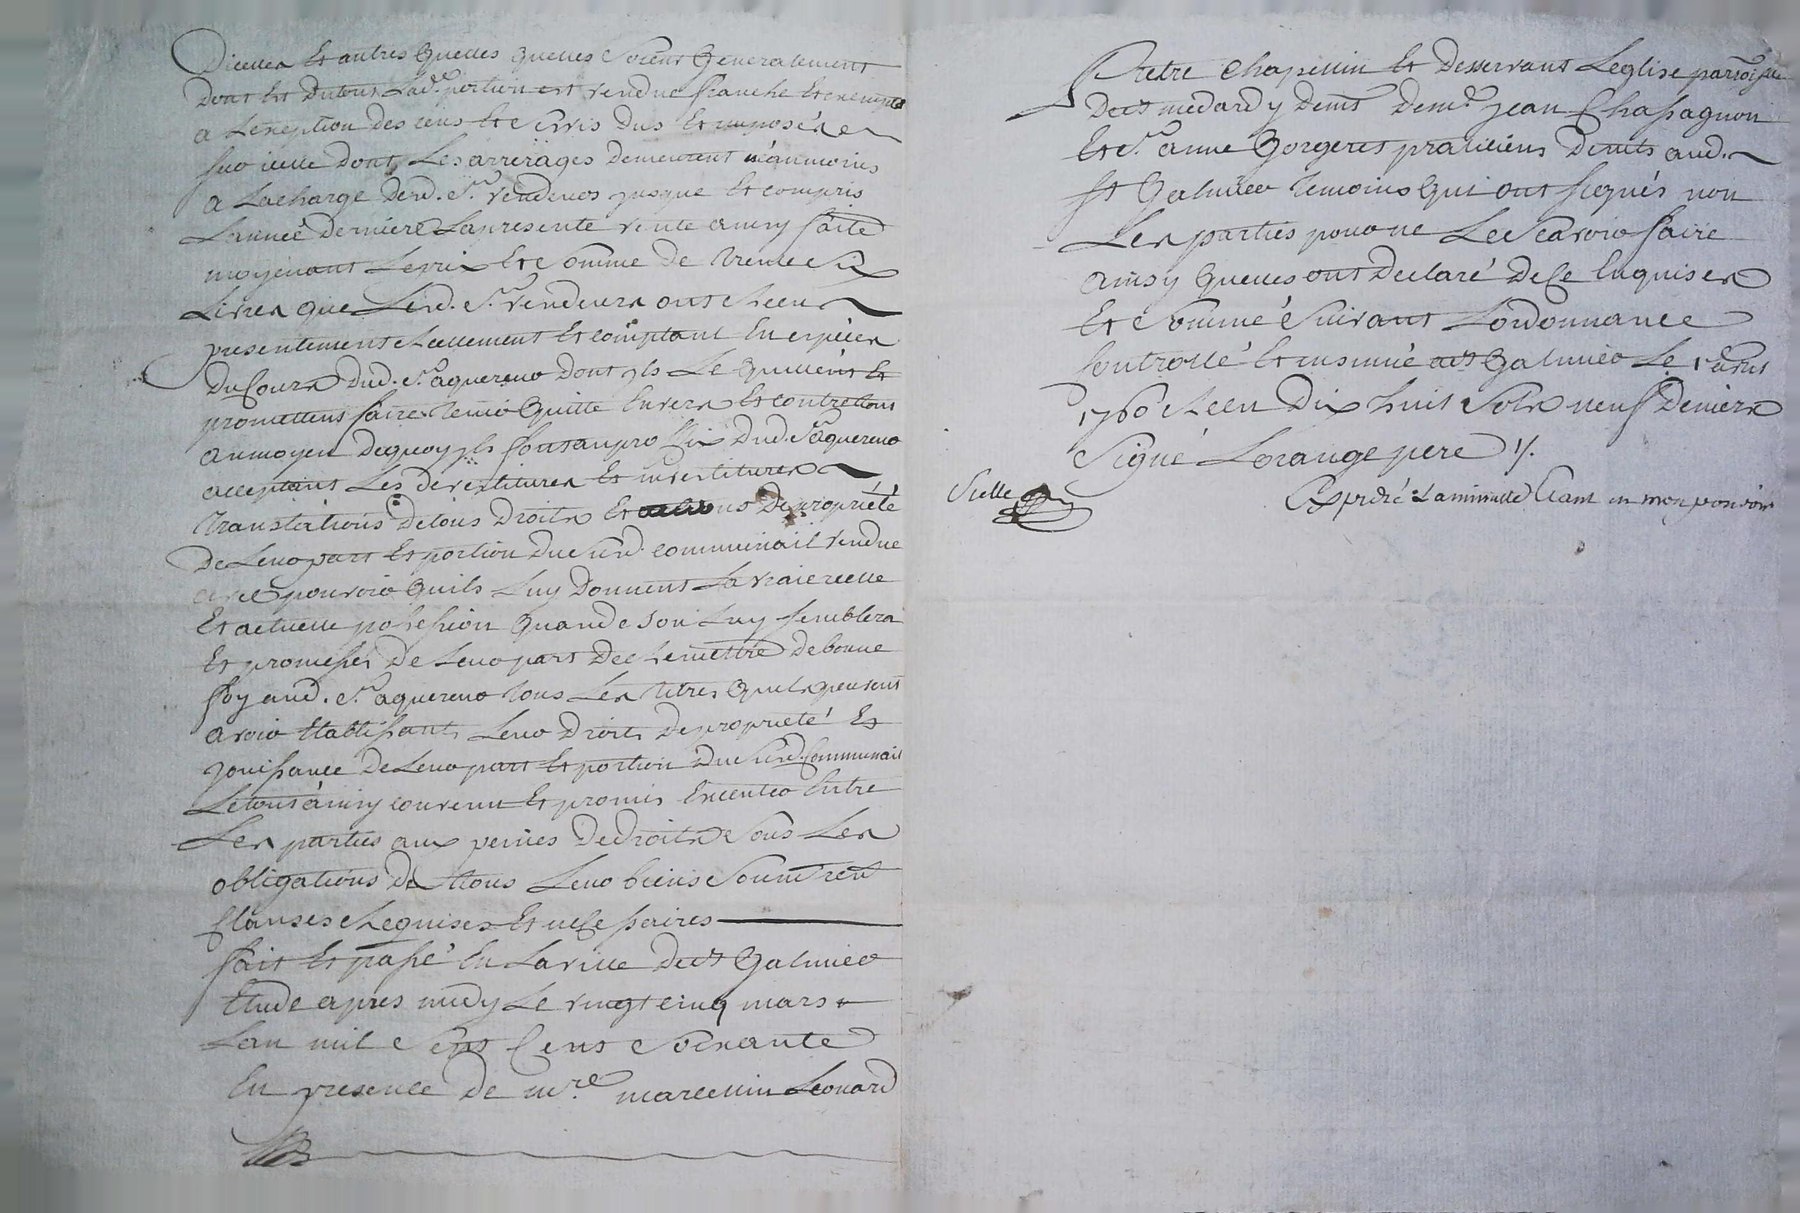 Dicelles Et autres Quelles quelles soient Generalement
Dont Et Dutout Lad.e portion est vendue franche Et exempte
a Lexeption des cens Et servis dus Et imposés
sur icelle dont Les arrerages demeurent néanmoins
a Lacharge desd. s.rs vendeurs jusque Et compris
Lannée derniere Lapresente vente ainsy faite
moyenant Leprix Et somme de trente six
Livres que Lesd. s.rs vendeurs ont Receu
presentement Reellement Et comptant En espèces
Du Cours dud. s.r aquereur dont yls Le Quittent Et
promettent faire tenir Quitte Envers Et contre tous
aumoyen dequoy yls font au profit dud. s.r aquereur
acceptant Les devestitures Et investitures
translations detous droits Et actions de propriété
de Leur part Et portion du susd. communail vendue
avec pouvoir Quils Luy donnent La vraie reelle
Et actuelle possession Quand Bon Luy semblera
Et promesses de Leur part de Remettre de bonne
foy aud. s.r aquereur tous Les titres Quils peuvent
avoir Etablissants Leur droits de proprieté Et
jouissance de Leur part Et portion du susd. Communail
Letout ainsy convenu Et promis Executer Entre
Les parties aux peines dedroits sous Les
obligations de tous Leur biens soum.s ren.s
Clauses Requises Et necessaires
fait Et passé En La ville de st Galmier
Etude apres midy Le vingt cinq mars
Lan mil sept Cent soixante
En presence de m.re marcellin Leonard
Pretre Chapellin Et desservant Leglise parroissialle
de st medard y dem.t de m.e jean Chassagnon
Et s.r anne Gorgeret praticiens dem.ts aud.
st Galmier temoins Qui ont signés non
Les parties pour ne Le sçavoir faire
ainsy Quelles ont declaré de ce Enquises
Et sommé suivant Lordonnance
Controllé Et insinué a st Galmier Le 1.er avril
1760 Receu dix huit sols neuf deniers
Signé Lorange pere ./.
Expedié La minutte Etant en mon pouvoir